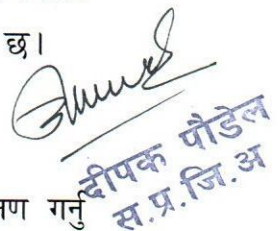 छ।
दीपक पौडेल
स.प्र.जि.अ
गर्नु